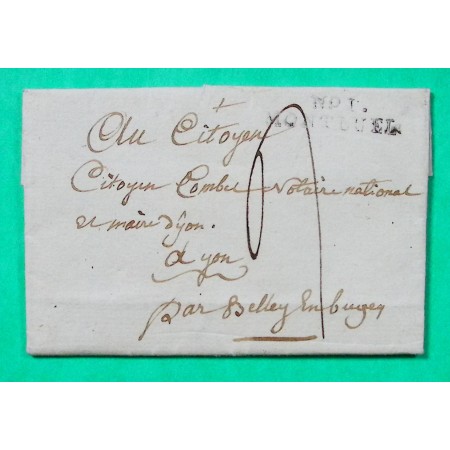 MDT.
MONTLUEL
Au Citoyen
Citoyen Combe Notaire national
et maire dyon.
a yon
par Belley En bugey